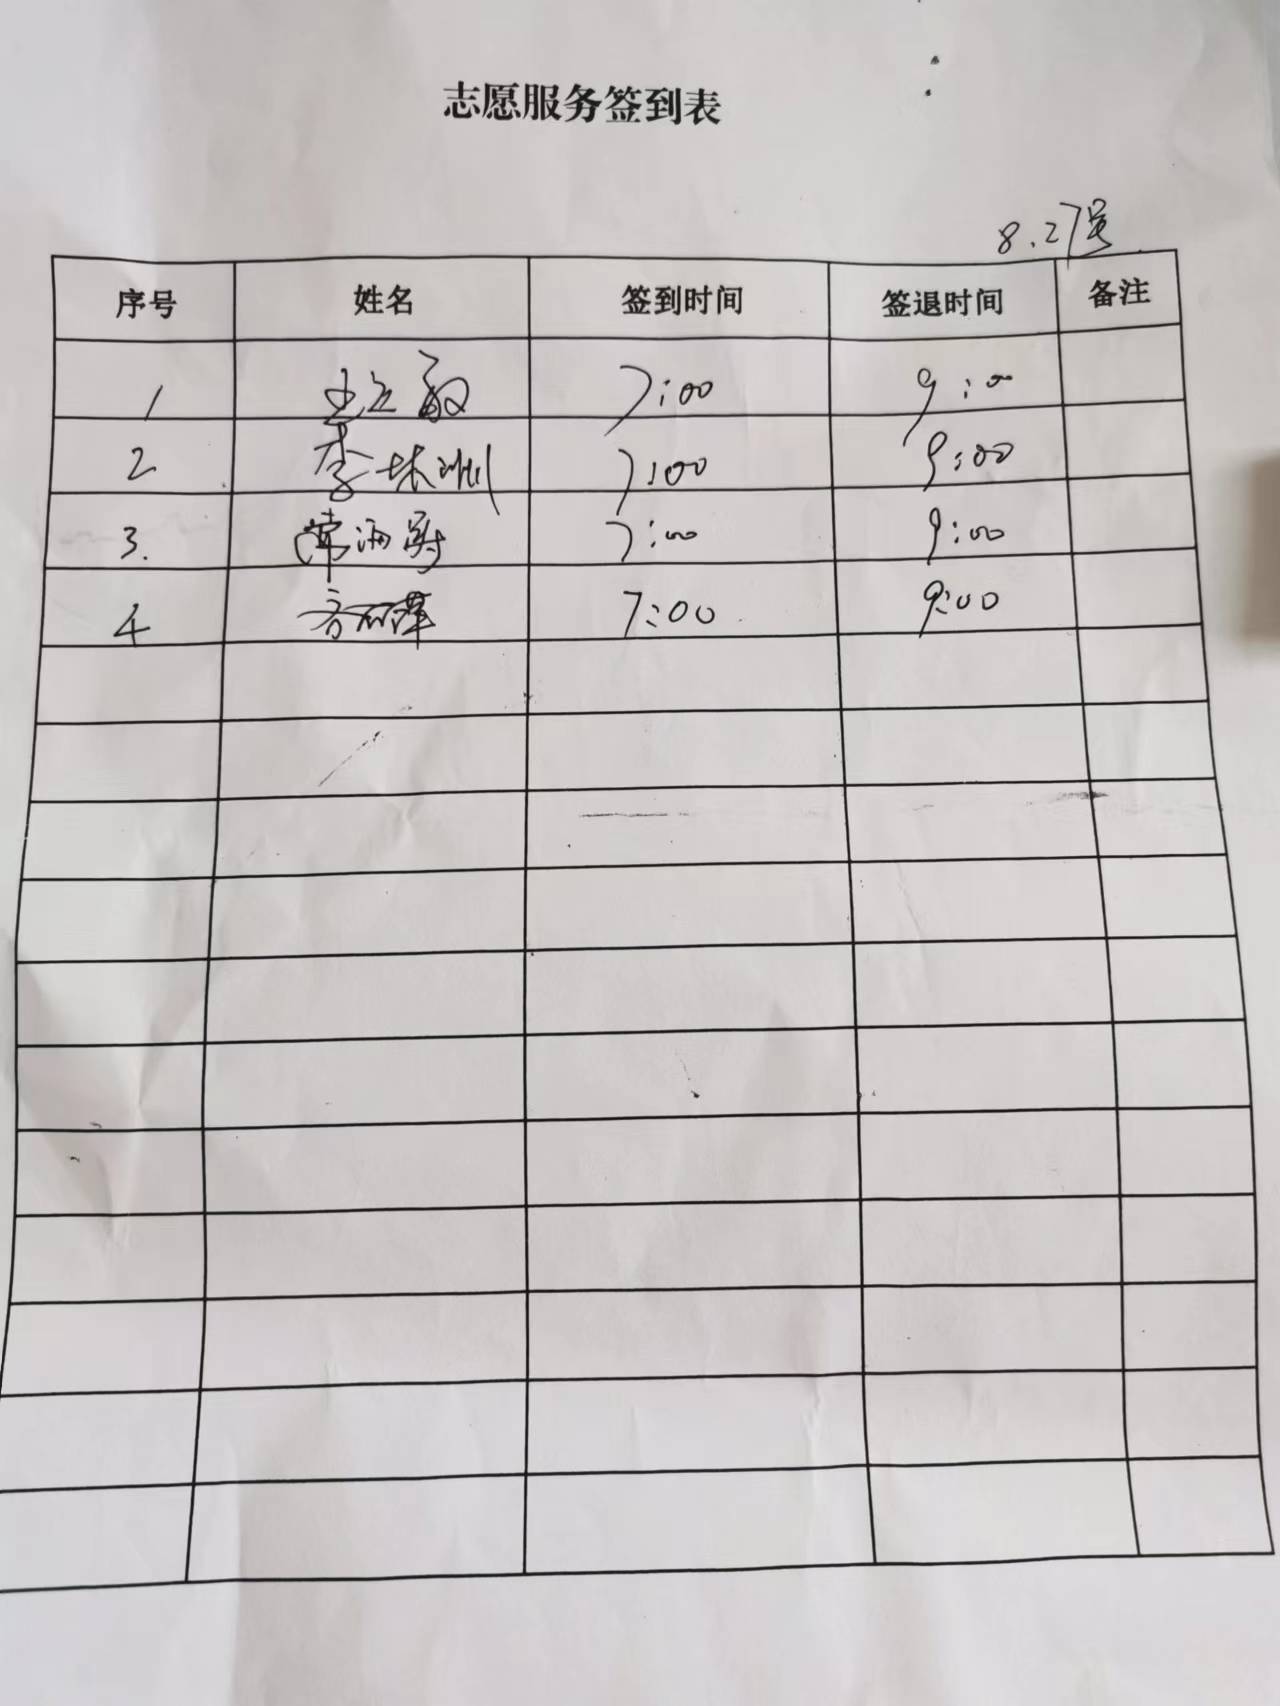 志愿服务签到表
8.27号
序号 姓名 签到时间 签退时间 备注
1 7:00 9:00
2 李 洲 7:00 9:00
3. 常海 7:00 9:00
4 7:00 9:00